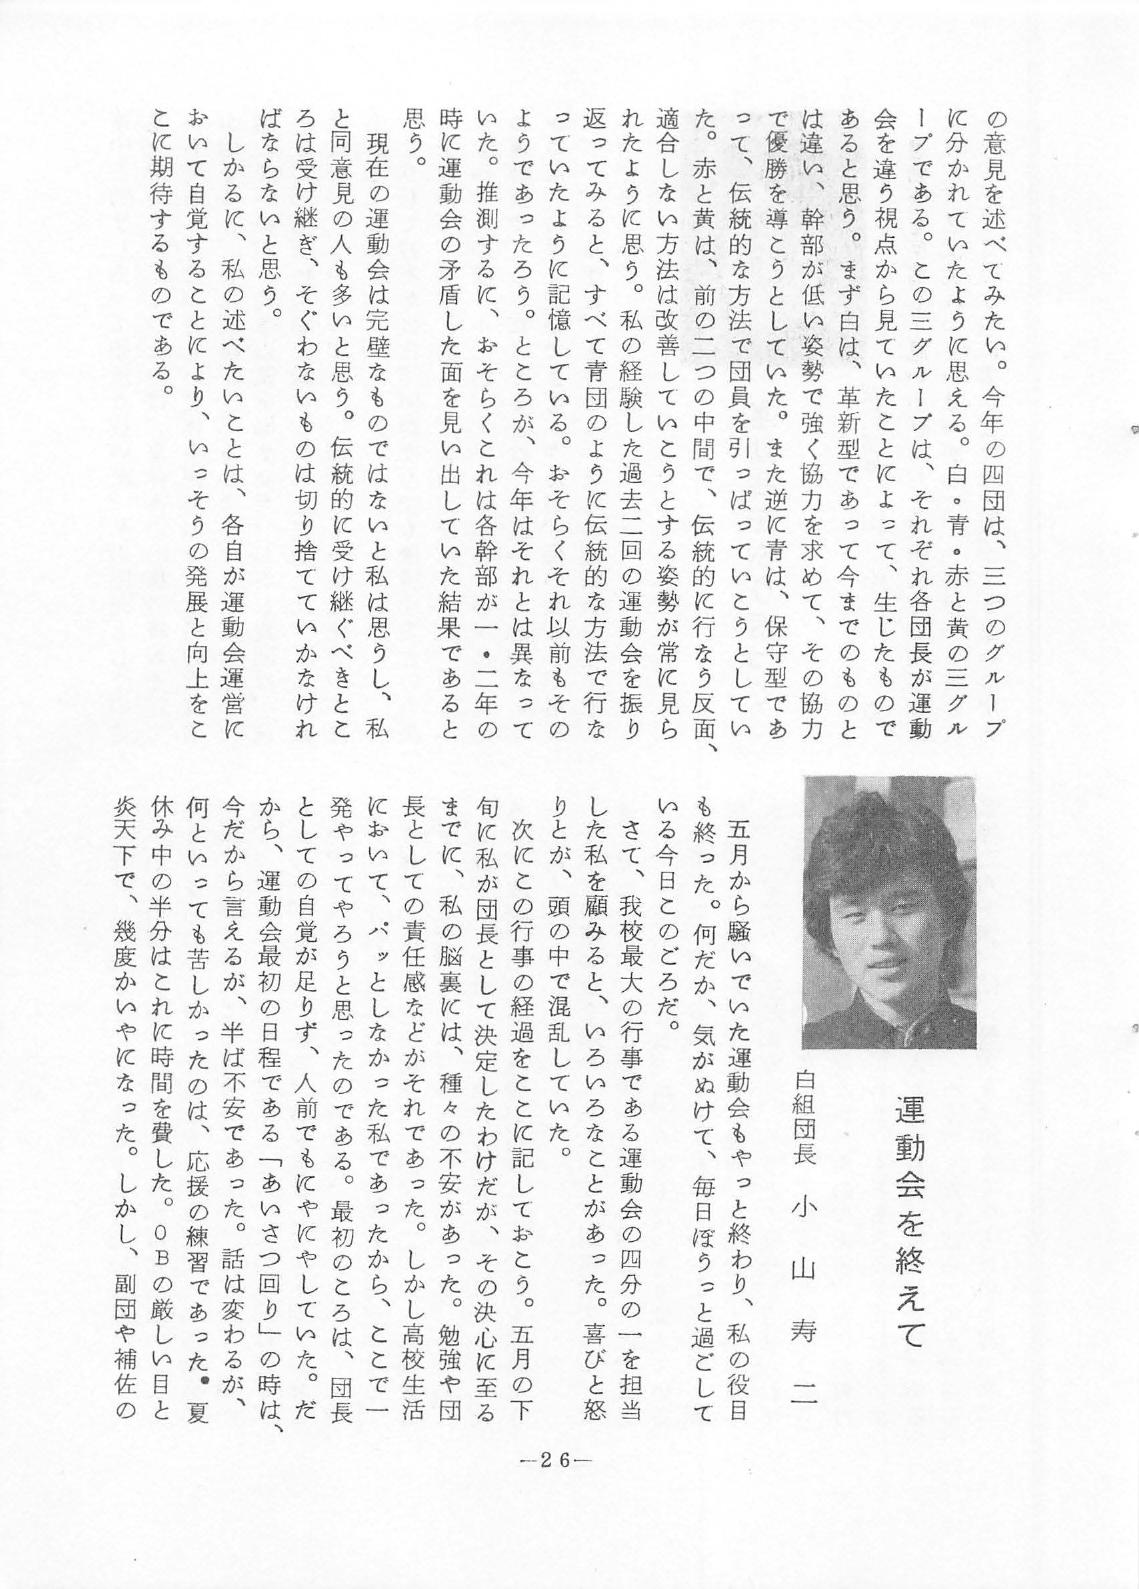 の意見を述べてみたい。今年の四団は、三つのグループ
に分かれていたように思える。白・青・赤と黄の三グル
ープである。この三グループは、それぞれ各団長が運動
会を違う視点から見ていたことによって、生じたもので
あると思う。まず白は、革新型であって今までのものと
は違い、幹部が低い姿勢で強く協力を求めて、その協力
で優勝を導こうとしていた。また逆に青は、保守型であ
って、伝統的な方法で団員を引っぱっていこうとしてい
た。赤と黄は、前の二つの中間で、伝統的に行なう反面、
適合しない方法は改善していこうとする姿勢が常に見ら
れたように思う。私の経験した過去二回の運動会を振り
返ってみると、すべて青団のように伝統的な方法で行な
っていたように記憶している。おそらくそれ以前もその
ようであったろう。ところが、今年はそれとは異なって
いた。推測するに、おそらくこれは各幹部が一・二年の
時に運動会の矛盾した面を見い出していた結果であると
思う。
現在の運動会は完璧なものではないと私は思うし、私
と同意見の人も多いと思う。伝統的に受け継ぐべきとこ
ろは受け継ぎ、そぐわないものは切り捨てていかなけれ
ばならないと思う。
しかるに、私の述べたいことは、各自が運動会運営に
おいて自覚することにより、いっそうの発展と向上をこ
こに期待するものである。
運動会を終えて
白組団長 小山寿二
五月から騒いでいた運動会もやっと終わり、私の役目
も終った。何だか、気がぬけて、毎日ぼうっと過ごして
いる今日このごろだ。
さて、我校最大の行事である運動会の四分の一を担当
した私を顧みると、いろいろなことがあった。喜びと怒
りとが、頭の中で混乱していた。
次にこの行事の経過をここに記しておこう。五月の下
旬に私が団長として決定したわけだが、その決心に至る
までに、私の脳裏には、種々の不安があった。勉強や団
長としての責任感などがそれであった。しかし高校生活
において、パッとしなかった私であったから、ここで一
発やってやろうと思ったのである。最初のころは、団長
としての自覚が足りず、人前でもにやにやしていた。だ
から、運動会最初の日程である「あいさつ回り」の時は、
今だから言えるが、半ば不安であった。話は変わるが、
何といっても苦しかったのは、応援の練習であった。夏
休み中の半分はこれに時間を費した。OBの厳しい目と
炎天下で、幾度かいやになった。しかし、副団や補佐の
—26—